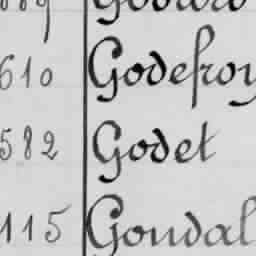 610 Godefroy
582 Godet
115 Goudal